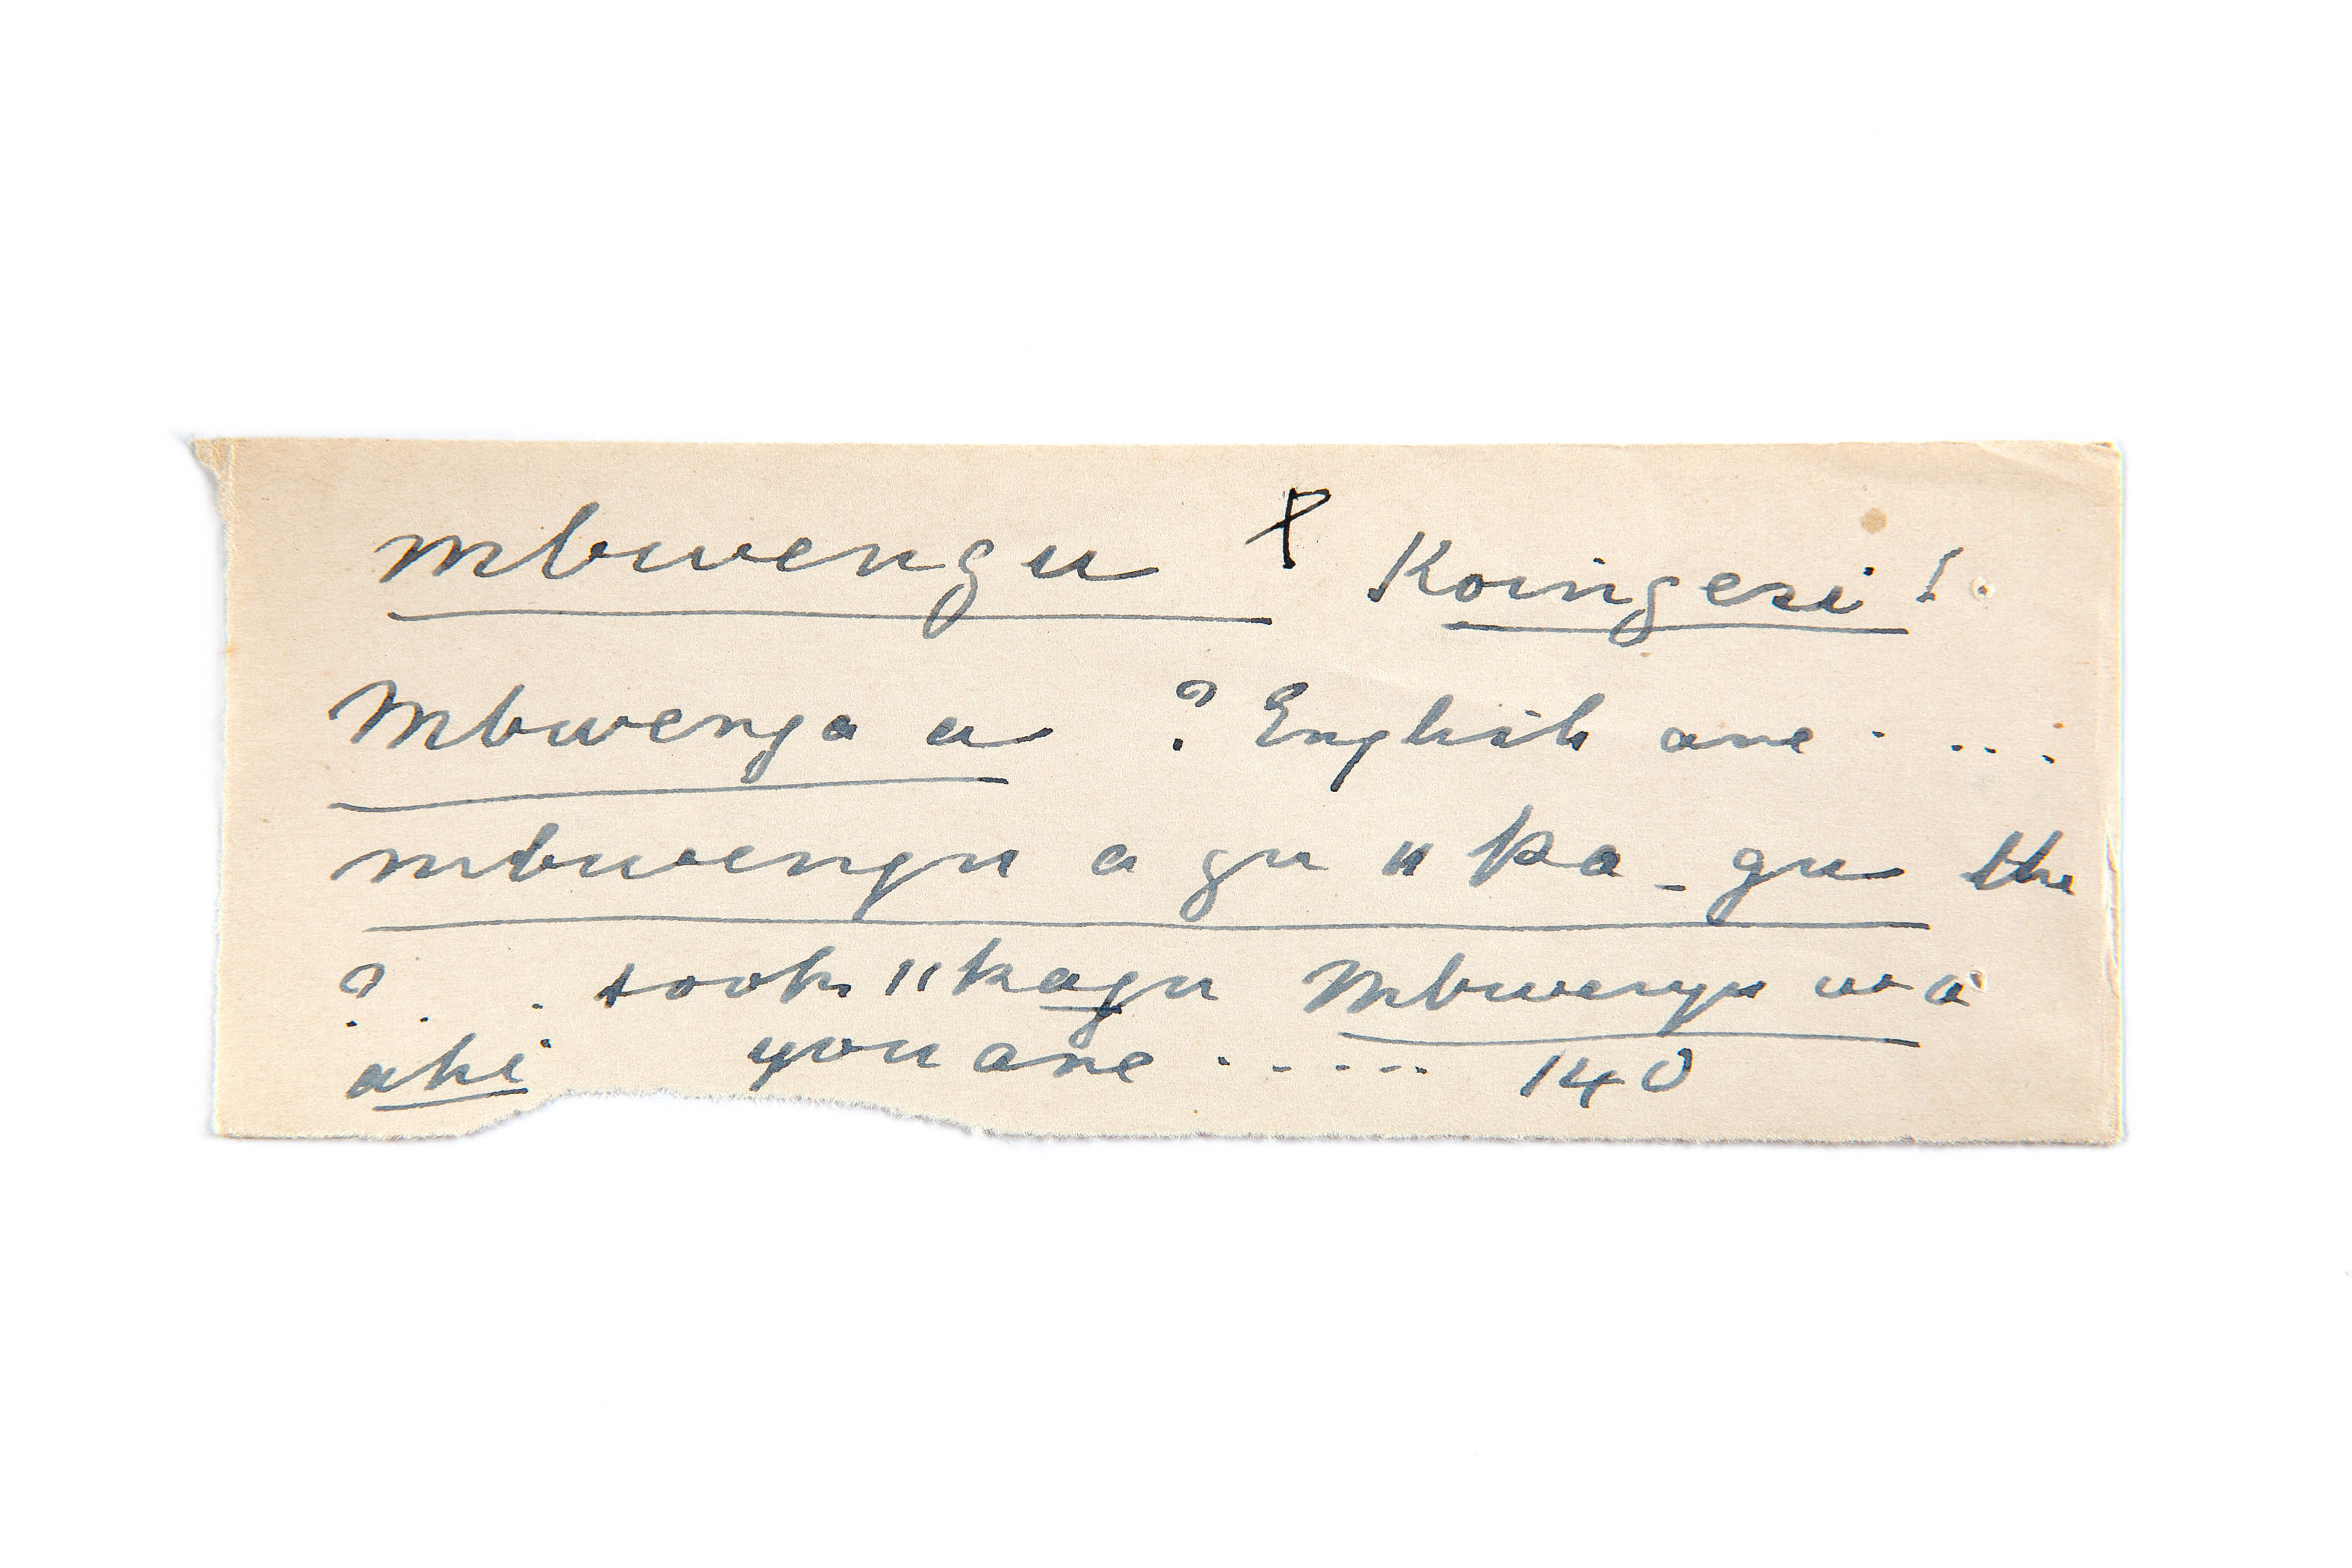 mbwengu Koingesi !
Mbwenga u ? English are . . . .
mbwengu a gu " ka - gu the
? . . took " kagu Mbwengu wa
aki you are . . . . . 140